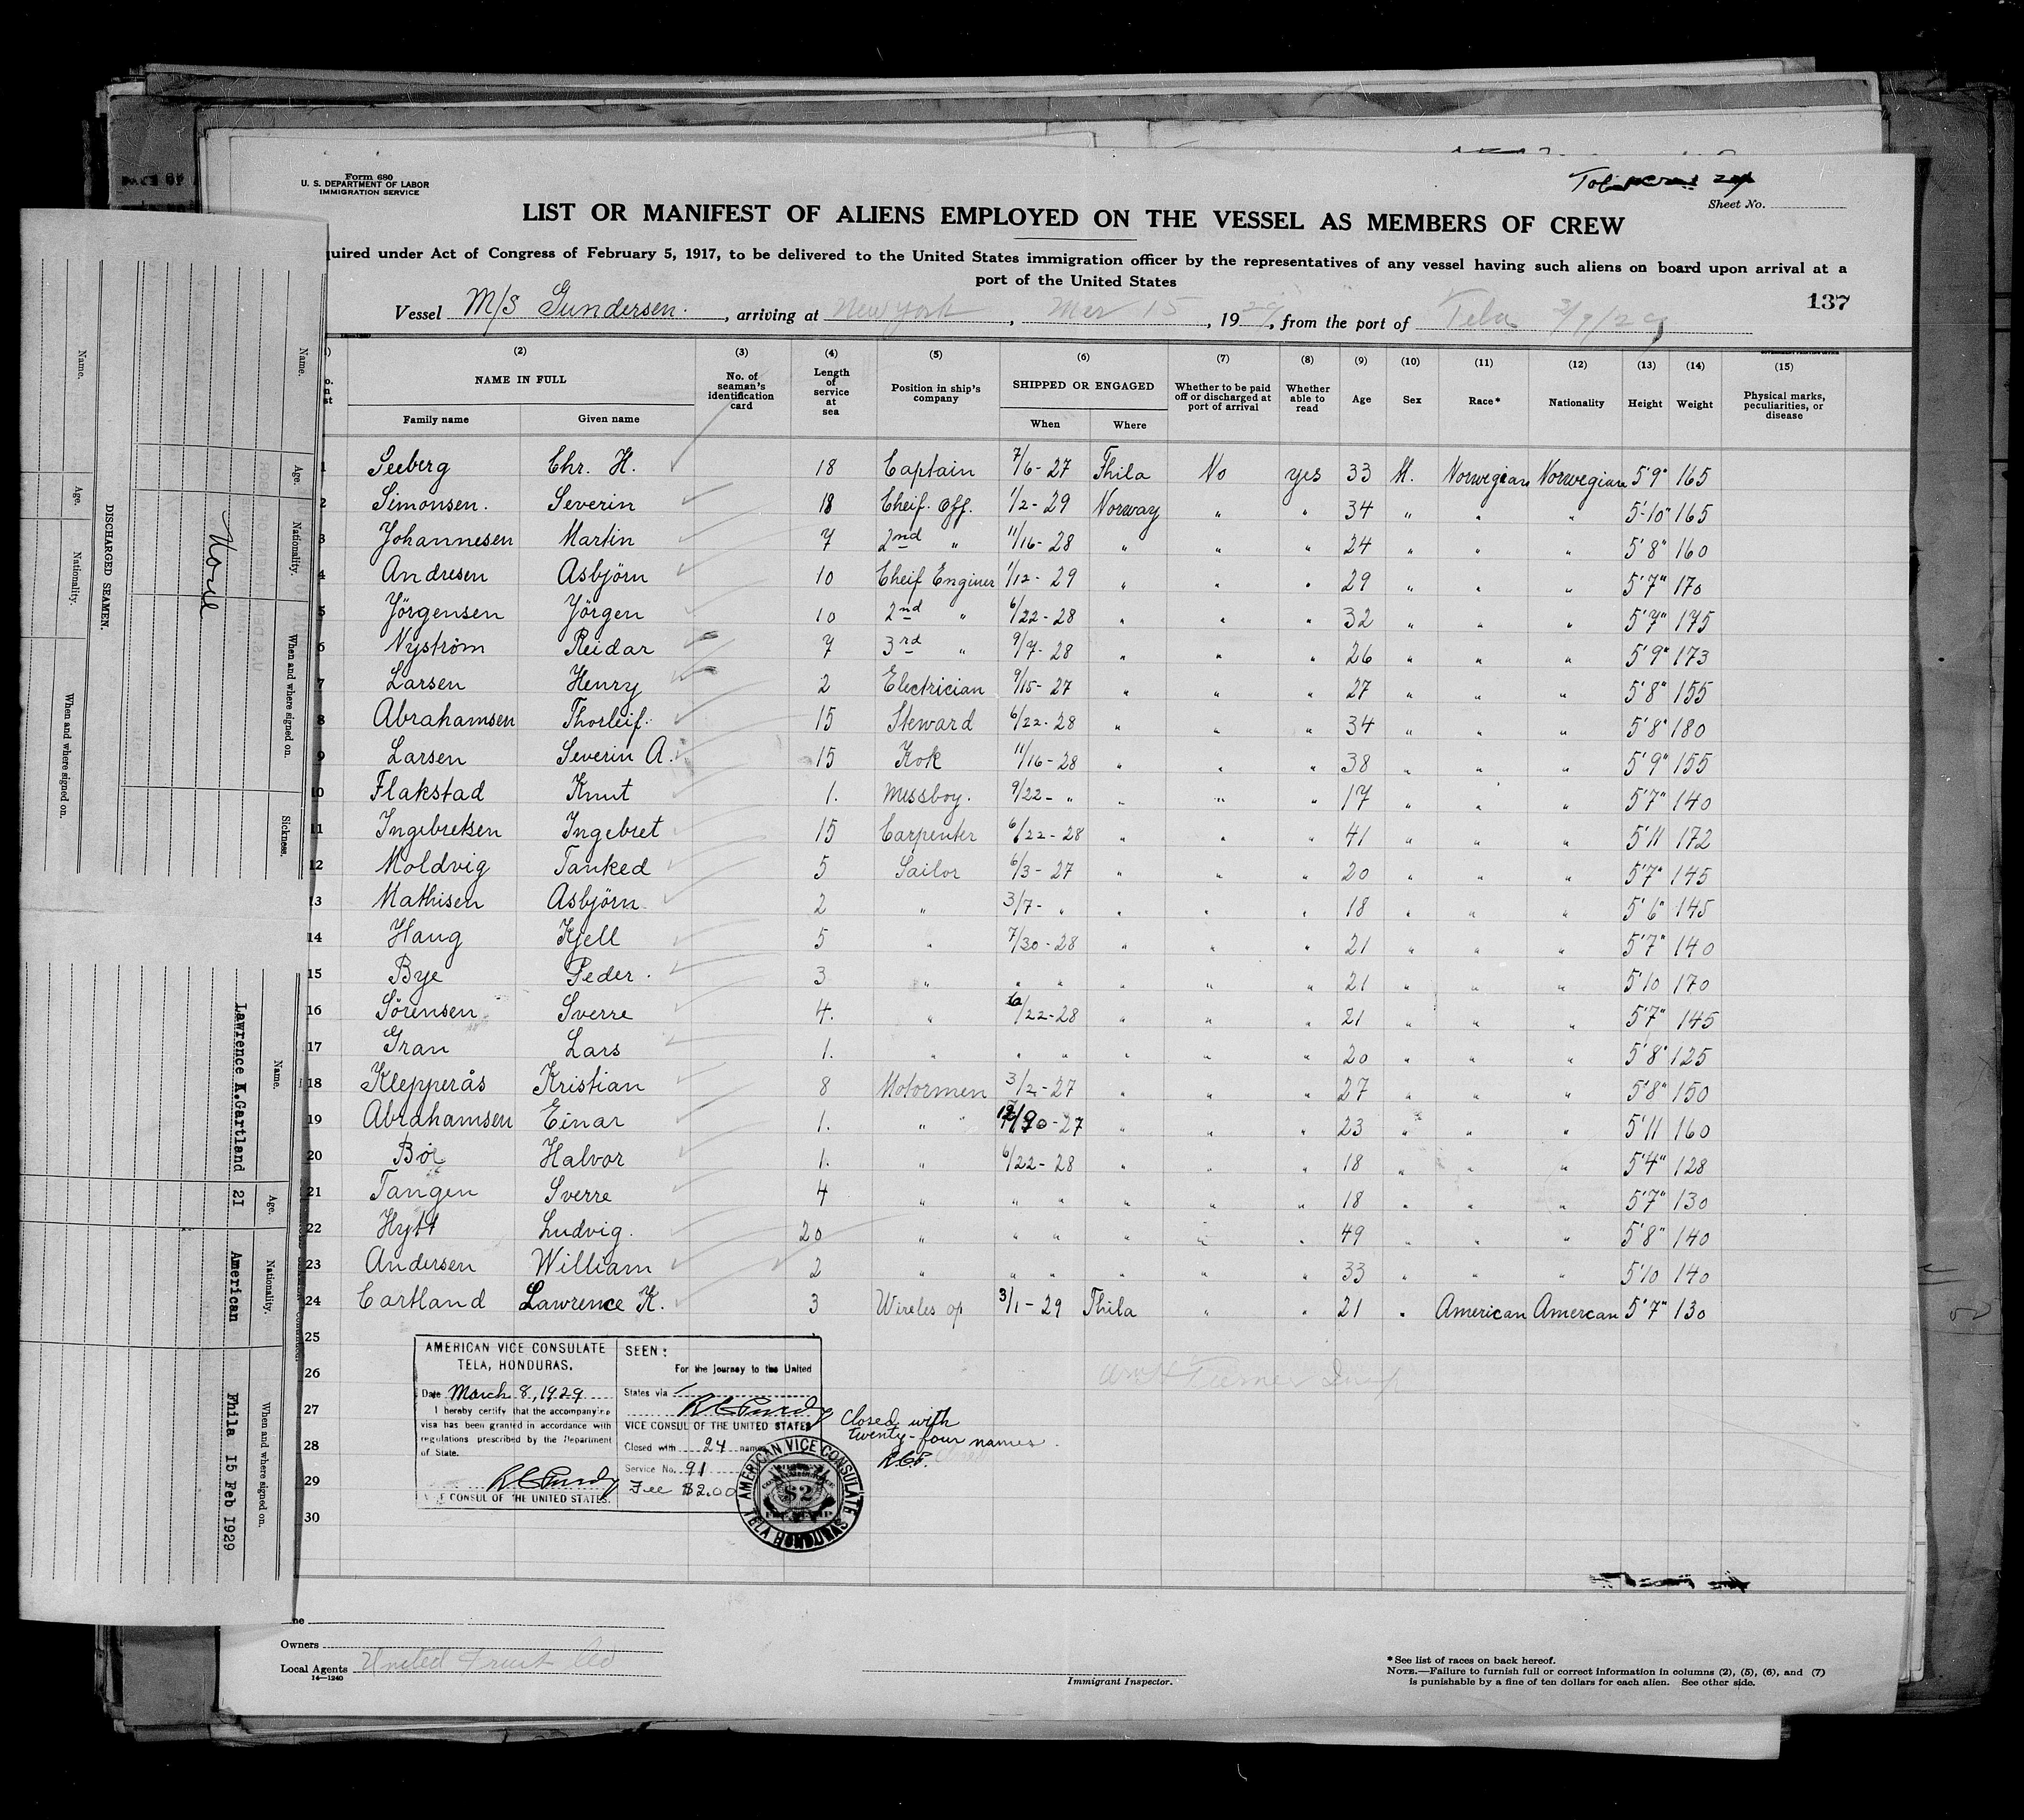 Form 680
U. S. DEPARTMENT OF LABOR
IMMIGRATION SERVICE
Sheet No.
LIST OR MANIFEST OF ALIENS EMPLOYED ON THE VESSEL AS MEMBERS OF CREW
quired under Act of Congress of February 5, 1917, to be delivered to the United States immigration officer by the representatives of any vessel having such aliens on board upon arrival at a
port of the United States
137
Vessel M/S Gundersen. , arriving at New York , Mar 15 , 1929, from the port of Tela 3/9/29
(2) (3) (4) (5) (6) (7) (8) (9) (10) (11) (12) (13) (14) (15)
NAME IN FULL Family name Given name No. of seaman's identification card Length of service at sea Position in ship's company SHIPPED OR ENGAGED When Where Whether to be paid off or discharged at port of arrival Whether able to read Age Sex Race* Nationality Height Weight Physical marks, peculiarities, or disease
1 Seeberg Chr. H. 18 Captain 7/6-27 Phila No yes 33 M. Norwegian Norwegian 5'9" 165
2 Simonsen. Severin 18 Cheif. Off. 1/2-29 Norway " " 34 " " " 5'-10" 165
3 Johannesen Martin 7 2nd " 11/16-28 " " " 24 " " " 5'8" 160
4 Andresen Asbjörn 10 Cheif Enginer 1/12-29 " " " 29 " " " 5'7" 170
5 Jörgensen Jörgen 10 2nd " 6/22-28 " " " 32 " " " 5'7" 175
6 Nyström Reidar 7 3rd " 9/7-28 " " " 26 " " " 5'9" 173
7 Larsen Henry 2 Electrician 9/15-27 " " " 27 " " " 5'8" 155
8 Abrahamsen Thorleif. 15 Steward 6/22-28 " " " 34 " " " 5'8" 180
9 Larsen Severin A. 15 Kok 11/16-28 " " " 38 " " " 5'9" 155
10 Flakstad Knut 1. Messboy. 9/22- " " " " 17 " " " 5'7" 140
11 Ingebretsen Ingebret 15 Carpenter 6/22-28 " " " 41 " " " 5'11 172
12 Moldvig Tanked 5 Sailor 6/3-27 " " " 20 " " " 5'7" 145
13 Mathisen Asbjörn 2 " 3/7- " " " " 18 " " " 5'6" 145
14 Haug Kjell 5 " 7/30-28 " " " 21 " " " 5'7" 140
15 Bye Peder. 3 " " " " " " 21 " " " 5'10 170
16 Sörensen Sverre 4. " 6/22-28 " " " 21 " " " 5'7" 145
17 Gran Lars 1. " " " " " " 20 " " " 5'8" 125
18 Klepperås Kristian 8 Motormen 3/2-27 " " " 27 " " " 5'8" 150
19 Abrahamsen Einar 1. " -27 " " " 23 " " " 5'11 160
20 Halvor 1. " 6/22-28 " " " 18 " " " 5'4" 128
21 Tangen Sverre 4 " " " " " " 18 " " " 5'7" 130
22 Hytt Ludvig. 20 " " " " " " 49 " " " 5'8" 140
23 Andersen William 2 " " " " " " 33 " " " 5'10 140
24 Cartland Lawrence K. 3 Wireles op 3/1-29 Phila " " 21 " American Amercan 5'7" 130
25
26
27
28
29
30
AMERICAN VICE CONSULATE
TELA, HONDURAS.
Date March 8, 1929
I hereby certify that the accompanying
visa has been granted in accordance with
regulations prescribed by the Department
of State.
VICE CONSUL OF THE UNITED STATES.
SEEN:
For the journey to the United
States via
VICE CONSUL OF THE UNITED STATES
Closed with 24 names
Service No. 91
Fee $2.00
AMERICAN VICE CONSULATE
$2
TELA HONDURAS
Closed with
twenty-four names.
Owners
Local Agents United Fruit Co
14—1240
Immigrant Inspector.
*See list of races on back hereof.
NOTE.—Failure to furnish full or correct information in columns (2), (5), (6), and (7)
is punishable by a fine of ten dollars for each alien. See other side.
Name. Age. Nationality. When and where signed on. Sickness.
None
DISCHARGED SEAMEN.
Name. Age. Nationality. When and where signed on.
Name. Age. Nationality. When and where signed on.
Lawrence K.Gartland 21 American Phila 15 Feb 1929